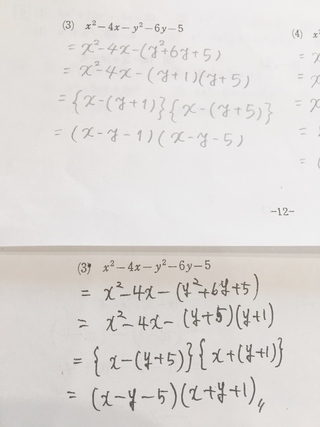 (3) x²−4x−y²−6y−5
= x²−4x−(y²+6y+5)
= x²−4x−(y+1)(y+5)
= {x−(y+1)}{x−(y+5)}
= (x−y−1)(x−y−5)
(4) x²
= x
= x
= x
=
= (
−12−
(3) x²−4x−y²−6y−5
= x²−4x−(y²+6y+5)
= x²−4x−(y+5)(y+1)
= {x−(y+5)}{x+(y+1)}
= (x−y−5)(x+y+1)〃